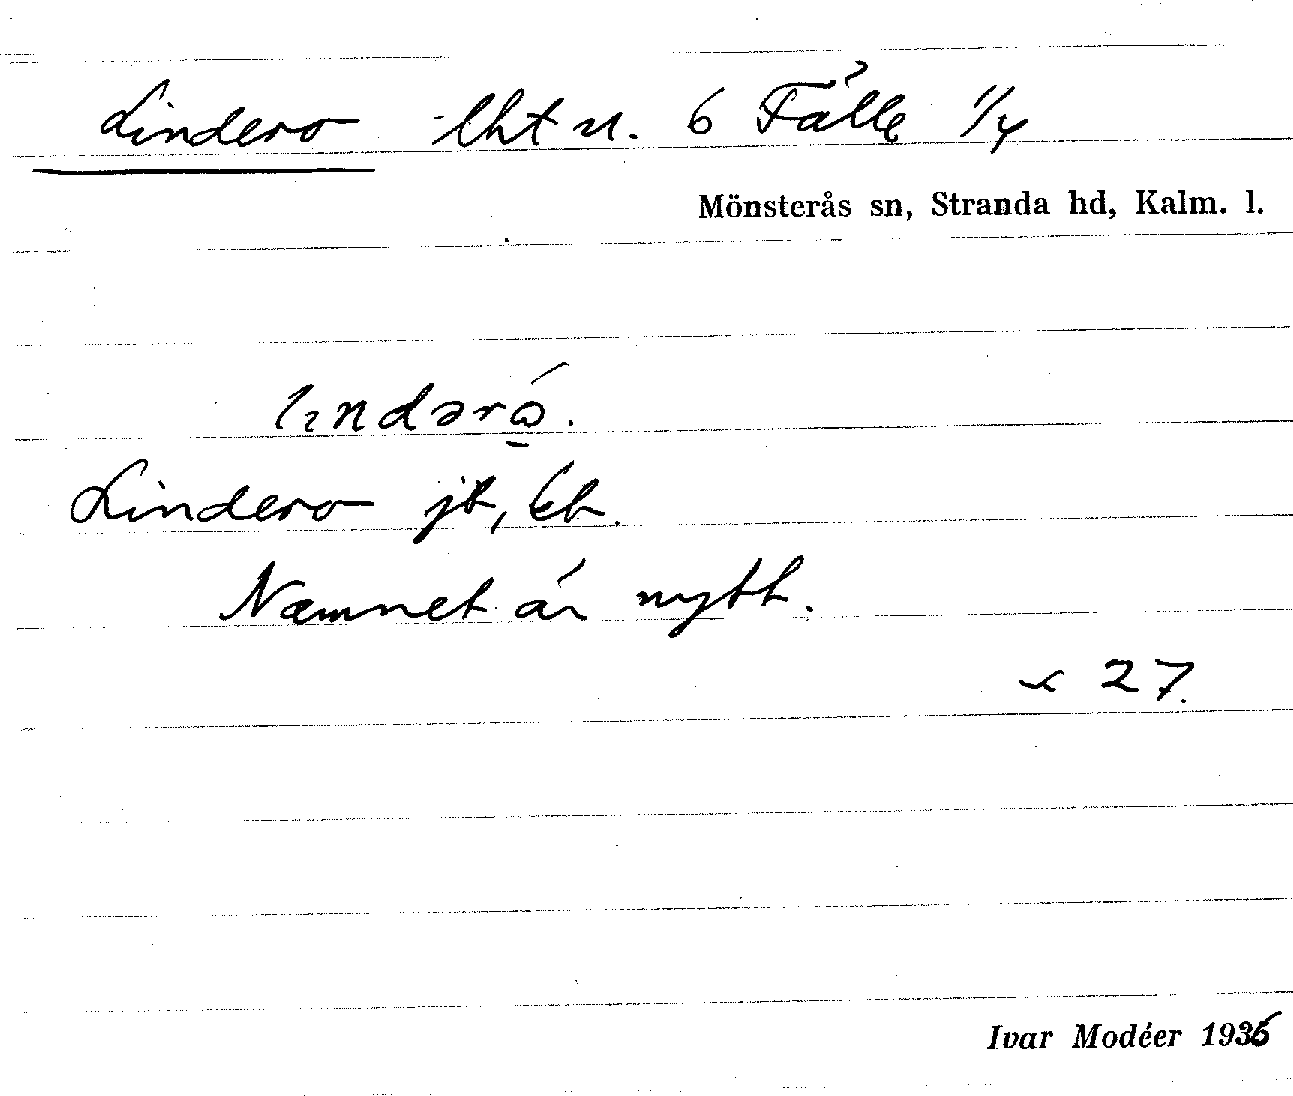 Lindero lht u. 6 Fålle 1/4
Mönsterås sn, Stranda hd, Kalm. l.
Lindero jb, kb.
Namnet är nytt.
27.
Ivar Modéer 1936